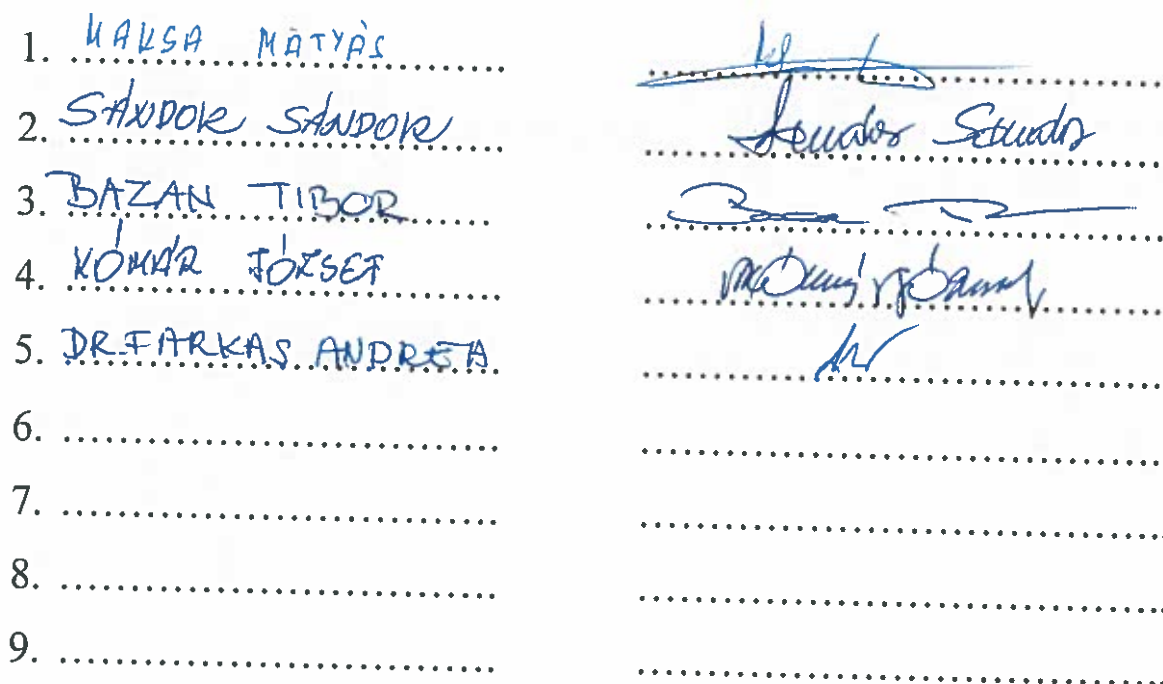 1. MAKSA MÁTYÁS
2. SÁNDOR SÁNDOR Sándor Sándor
3. BAZAN TIBOR
4. KÓMÁR JÓZSEF
5. DR. FARKAS ANDREA
6.
7.
8.
9.